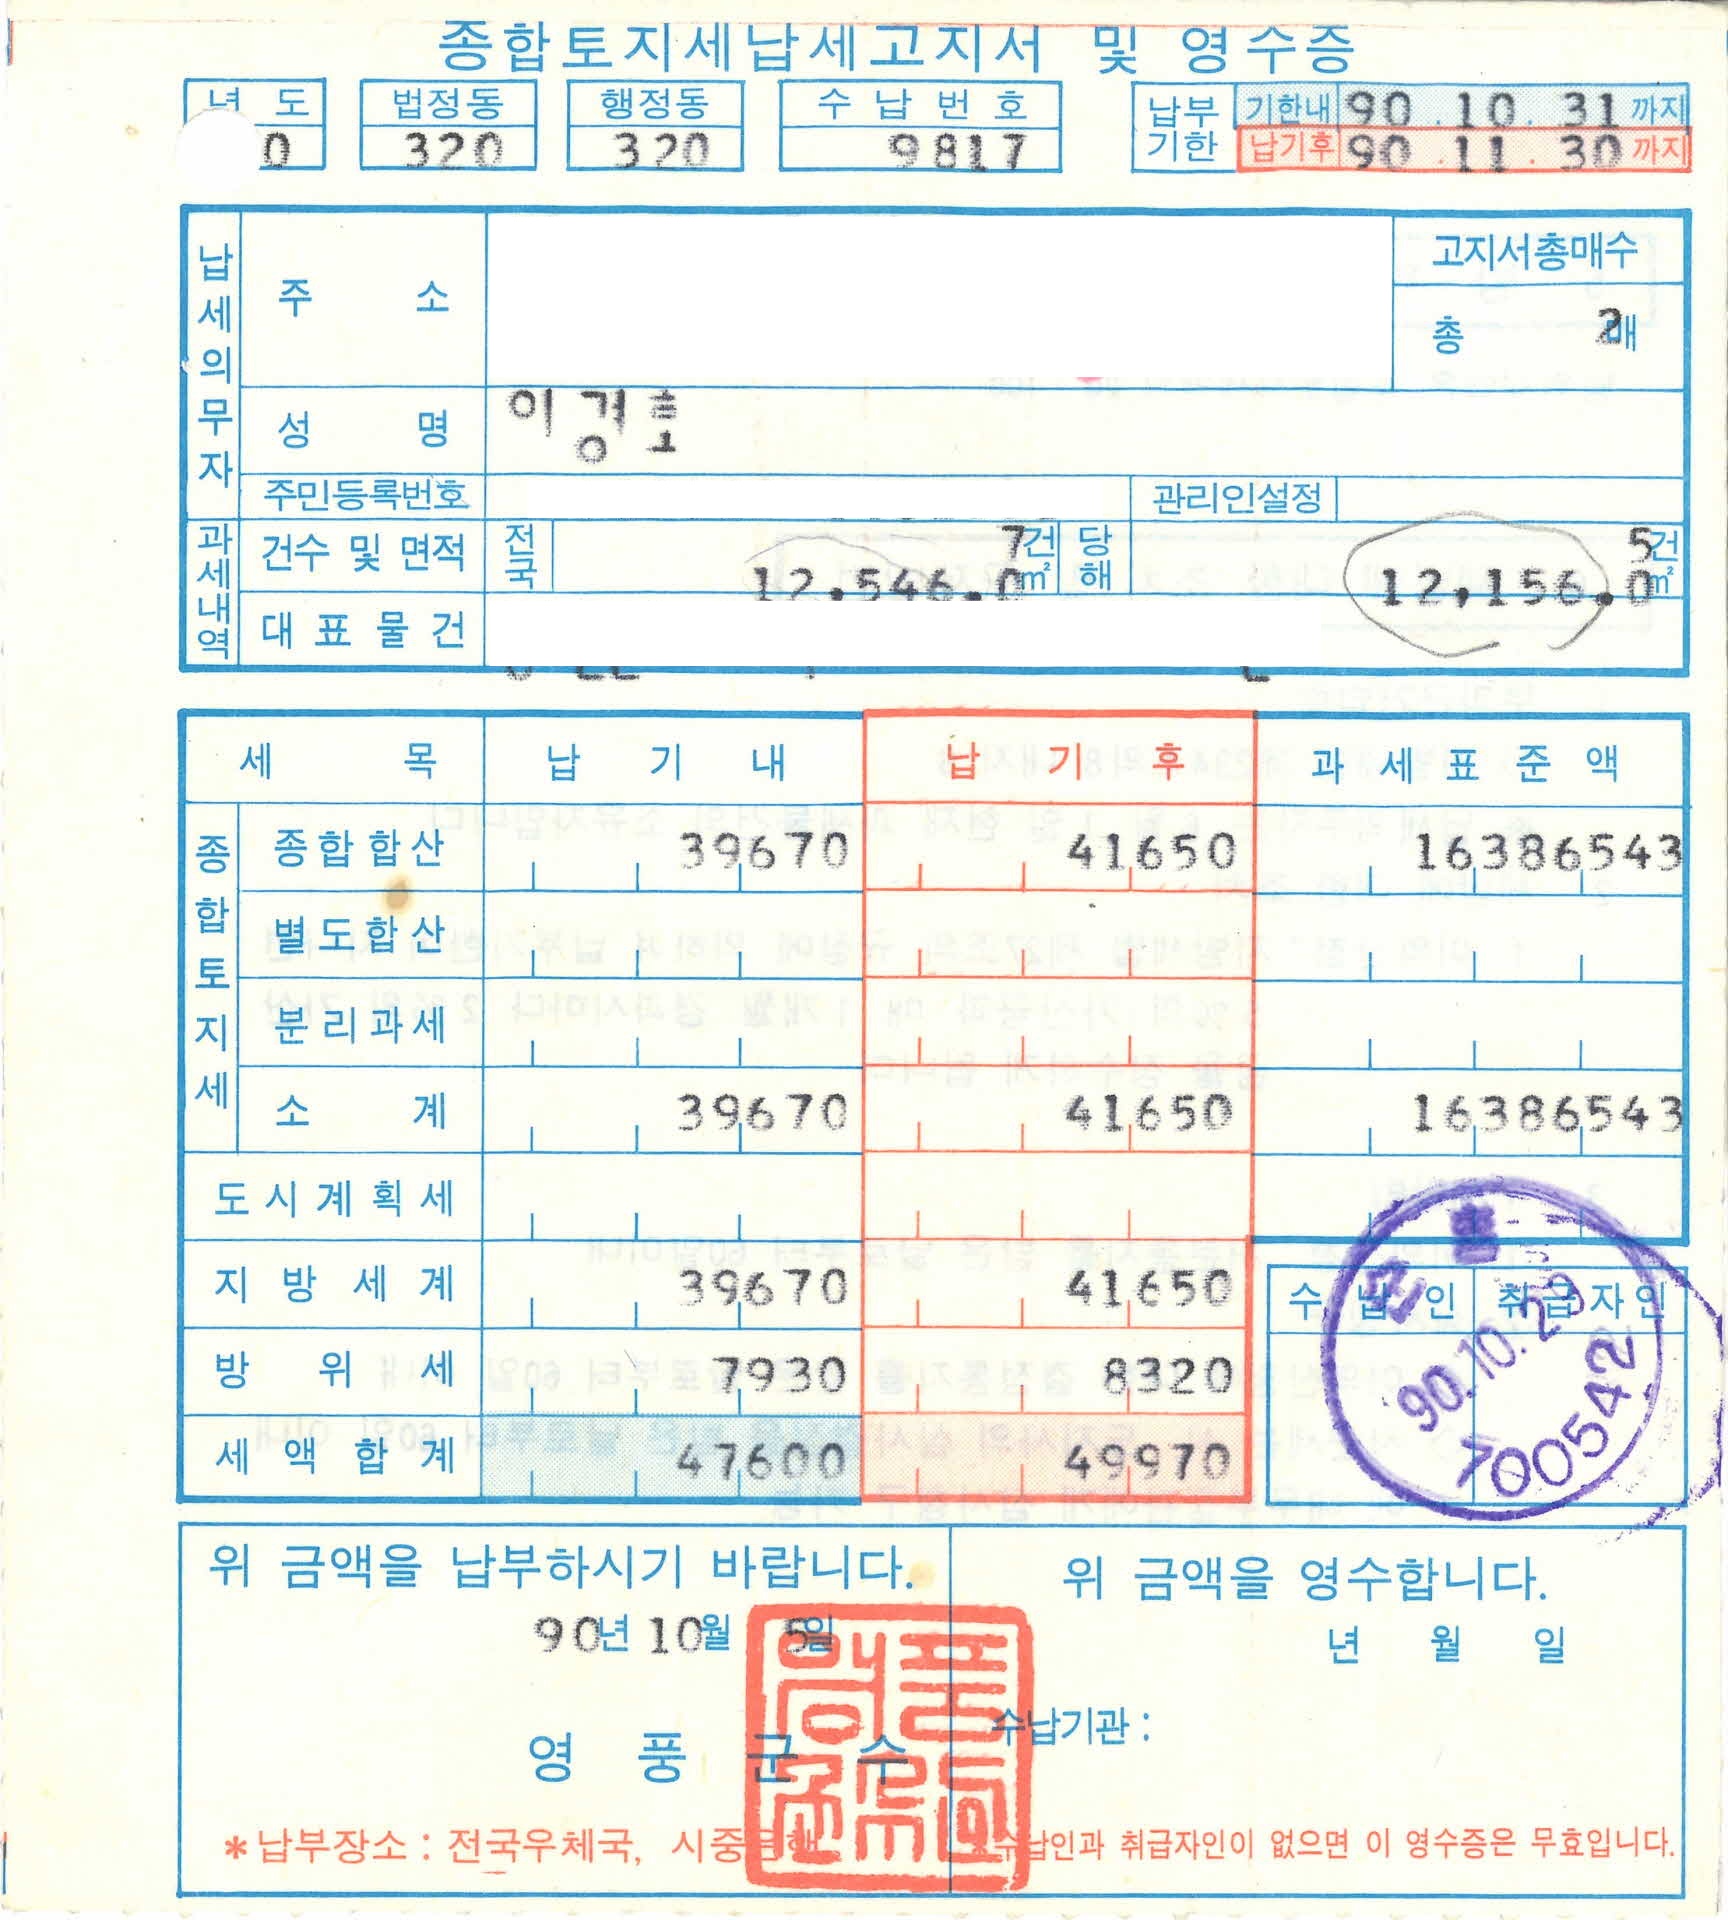 종합토지세납세고지서 및 영수증
년 도 법정동 행정동 수 납 번 호
0 320 320 9817
납부기한 기한내 90.10.31 까지
납기후 90.11.30 까지
납세의무자
주 소
고지서총매수
총 2매
성 명 이경호
주민등록번호 관리인설정
과세내역
건수 및 면적 전국 7건 12.546.0㎡ 당해 5건 12,156.0㎡
대 표 물 건
세 목 납 기 내 납 기 후 과 세 표 준 액
종합토지세
종합합산 39670 41650 16386543
별도합산
분리과세
소 계 39670 41650 16386543
도시계획세
지 방 세 계 39670 41650
방 위 세 7930 8320
세 액 합 계 47600 49970
수 납 인 취급자인
90.10.29
700542
위 금액을 납부하시기 바랍니다.
90년 10월 5일
영 풍 군 수
*납부장소 : 전국우체국, 시중은행
위 금액을 영수합니다.
년 월 일
수납기관 :
*수납인과 취급자인이 없으면 이 영수증은 무효입니다.